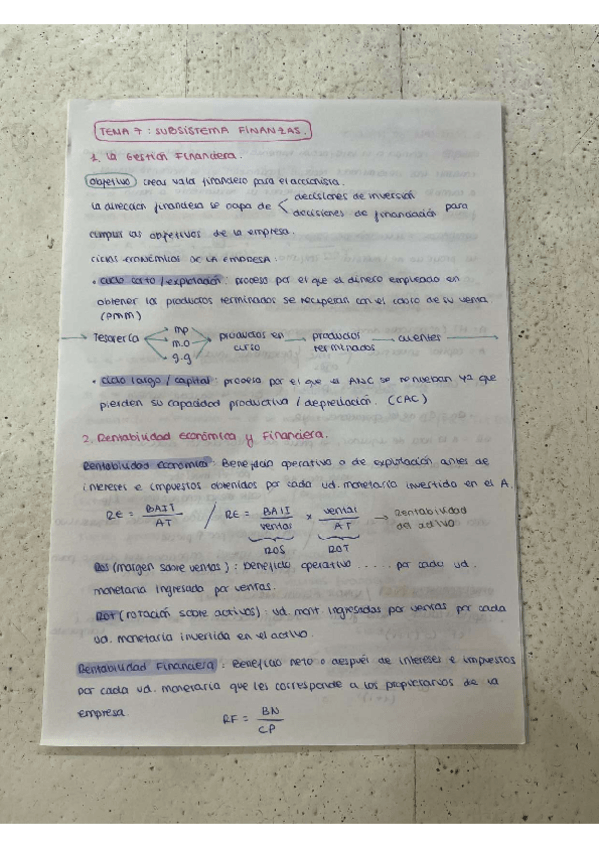 TEMA 7 : SUBSISTEMA FINANZAS.
1. La Gestión Financiera.
Objetivo crear valor financiero para el accionista.
La dirección financiera se ocupa de < decisiones de inversión
decisiones de financiación para
cumplir los objetivos de la empresa.
CICLOS ECONÓMICOS DE LA EMPRESA :
• ciclo corto / explotación : proceso por el que el dinero empleado en
obtener los productos terminados se recuperan con el cobro de su venta
(PMM)
→ Tesorería < mp m.o g.g > productos en curso → productos terminados → clientes →
• ciclo largo / capital : proceso por el que el ANC se renueban ya que
pierden su capacidad productiva / depreciación. (CAC)
2. Rentabilidad Económica y Financiera.
Rentabilidad Económica : Beneficio operativo o de explotación antes de
intereses e impuestos obtenidos por cada ud. monetaria invertida en el A.
RE = BAIT / AT / RE = BAII / ventas x ventas / AT → Rentabilidad del activo
ROS ROT
ROS (margen sobre ventas) : beneficio operativo ..... por cada ud.
monetaria ingresada por ventas.
ROT (rotación sobre activos) : ud. mont ingresadas por ventas por cada
ud. monetaria invertida en el activo.
Rentabilidad Financiera : Beneficio neto o después de intereses e impuestos
por cada ud. monetaria que les corresponde a los propietarios de la
empresa.
RF = BN / CP